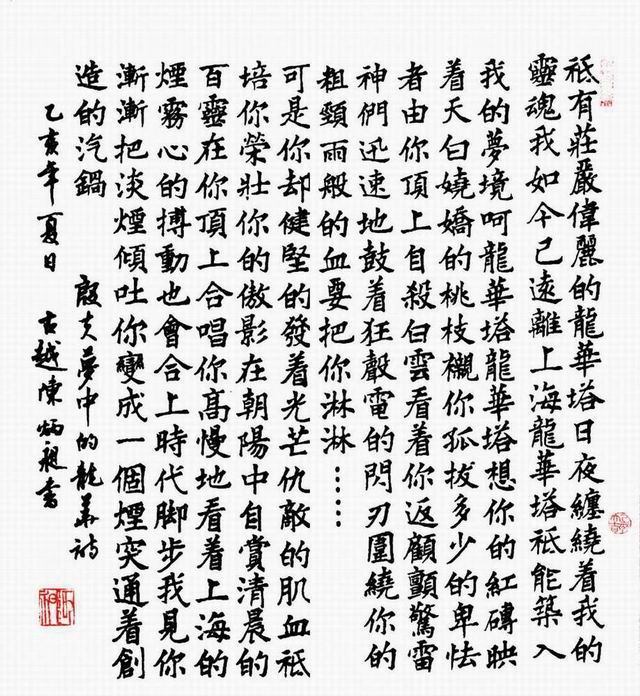 祇有莊嚴偉麗的龍華塔日夜纏繞着我的
靈魂我如今已遠離上海龍華塔祇能築入
我的夢境呵龍華塔龍華塔想你的紅磚映
着天白嬈嬌的桃枝襯你孤拔多少的卑怯
者由你頂上自殺白雲看着你返顧顫驚雷
神們迅速地鼓着狂聲電的閃刃圍繞你的
粗頸雨般的血要把你淋淋……
可是你却健堅的發着光芒仇敵的肌血祇
培你榮壯你的傲影在朝陽中自賞清晨的
百靈在你頂上合唱你高慢地看着上海的
煙霧心的搏動也會合上時代脚步我見你
漸漸把淡煙傾吐你變成一個煙突通着創
造的汽鍋
殷夫夢中的龍華詩
乙亥年夏日 古越陳炳昶書